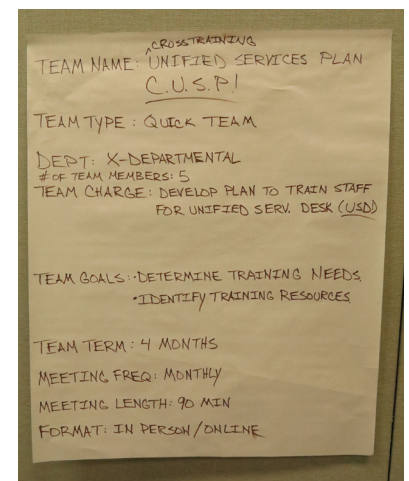 ^CROSSTRAINING
TEAM NAME: UNIFIED SERVICES PLAN
C.U.S.P!
TEAM TYPE: QUICK TEAM
DEPT: X-DEPARTMENTAL
# OF TEAM MEMBERS: 5
TEAM CHARGE: DEVELOP PLAN TO TRAIN STAFF
FOR UNIFIED SERV. DESK (USD)
TEAM GOALS: • DETERMINE TRAINING NEEDS.
• IDENTIFY TRAINING RESOURCES
TEAM TERM: 4 MONTHS
MEETING FREQ: MONTHLY
MEETING LENGTH: 90 MIN
FORMAT: IN PERSON/ONLINE